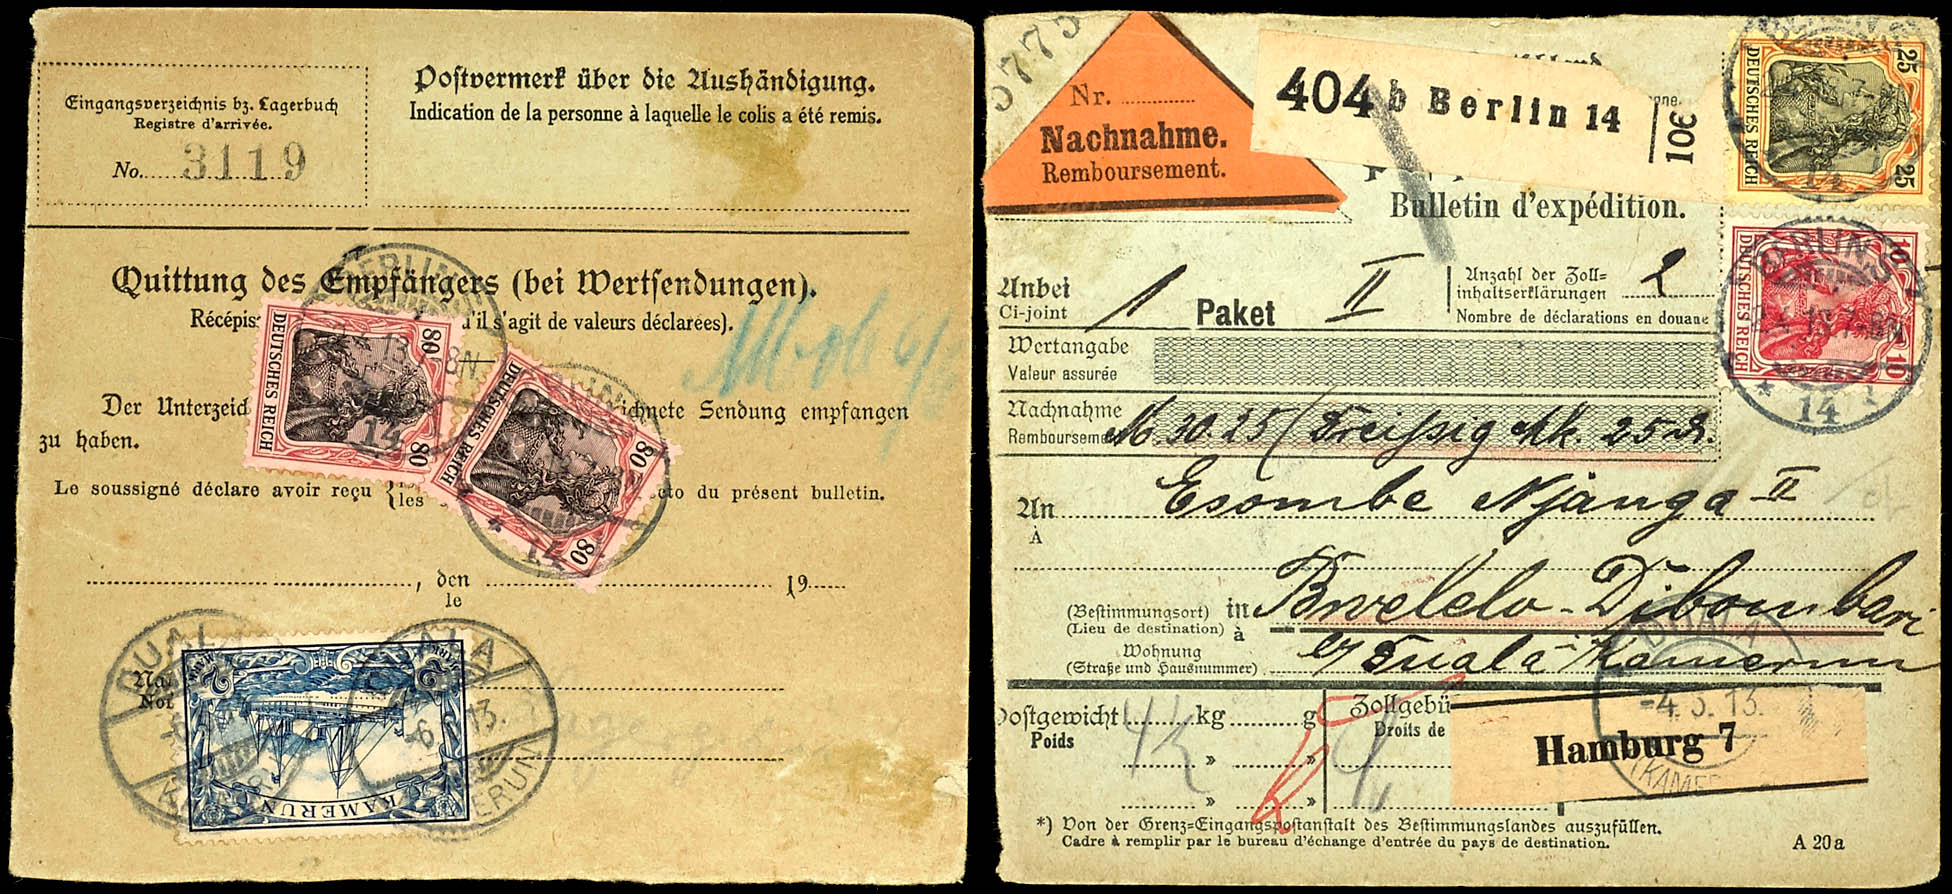 Eingangsverzeichnis bz. Lagerbuch
Registre d'arrivée.
No. 3119
Postvermerk über die Aushändigung.
Indication de la personne à laquelle le colis a été remis.
Quittung des Empfängers (bei Wertsendungen).
Récépiss d'il s'agit de valeurs déclarées).
DEUTSCHES REICH
80
80
DEUTSCHES REICH
80
80
BERLIN
14
14
Der Unterzeid ichnete Sendung empfangen
zu haben.
Le soussigné déclare avoir reçu les du présent bulletin.
, den 19
le
DUALA
DUALA
13.
KAMERUN
2
2
KAMERUN
Not
5775
Nr.
Nachnahme.
Remboursement.
404 b Berlin 14
301
Bulletin d'expédition.
25
25
DEUTSCHES REICH
14
10
10
DEUTSCHES REICH
BERLIN
13.7-8N
14
Anbei
Ci-joint
1 Paket II
Anzahl der Zoll=
inhaltserklärungen 2
Nombre de déclarations en douane
Wertangabe
Valeur assurée
Nachnahme
Remboursement M. 30.25 (Dreißig Mk. 25 Pf.
An
À
Esombe Njanga II
(Bestimmungsort) in
(Lieu de destination) à
Bwelelo-Dibombari
Wohnung
(Straße und Hausnummer)
b/ Duala Kamerun
Postgewicht kg g
Poids
» »
» »
Zollgebü
Droits de
DUALA
-4.5.13.
(KAMER
Hamburg 7
*) Von der Grenz=Eingangspostanstalt des Bestimmungslandes auszufüllen.
Cadre à remplir par le bureau d'échange d'entrée du pays de destination.
A 20a